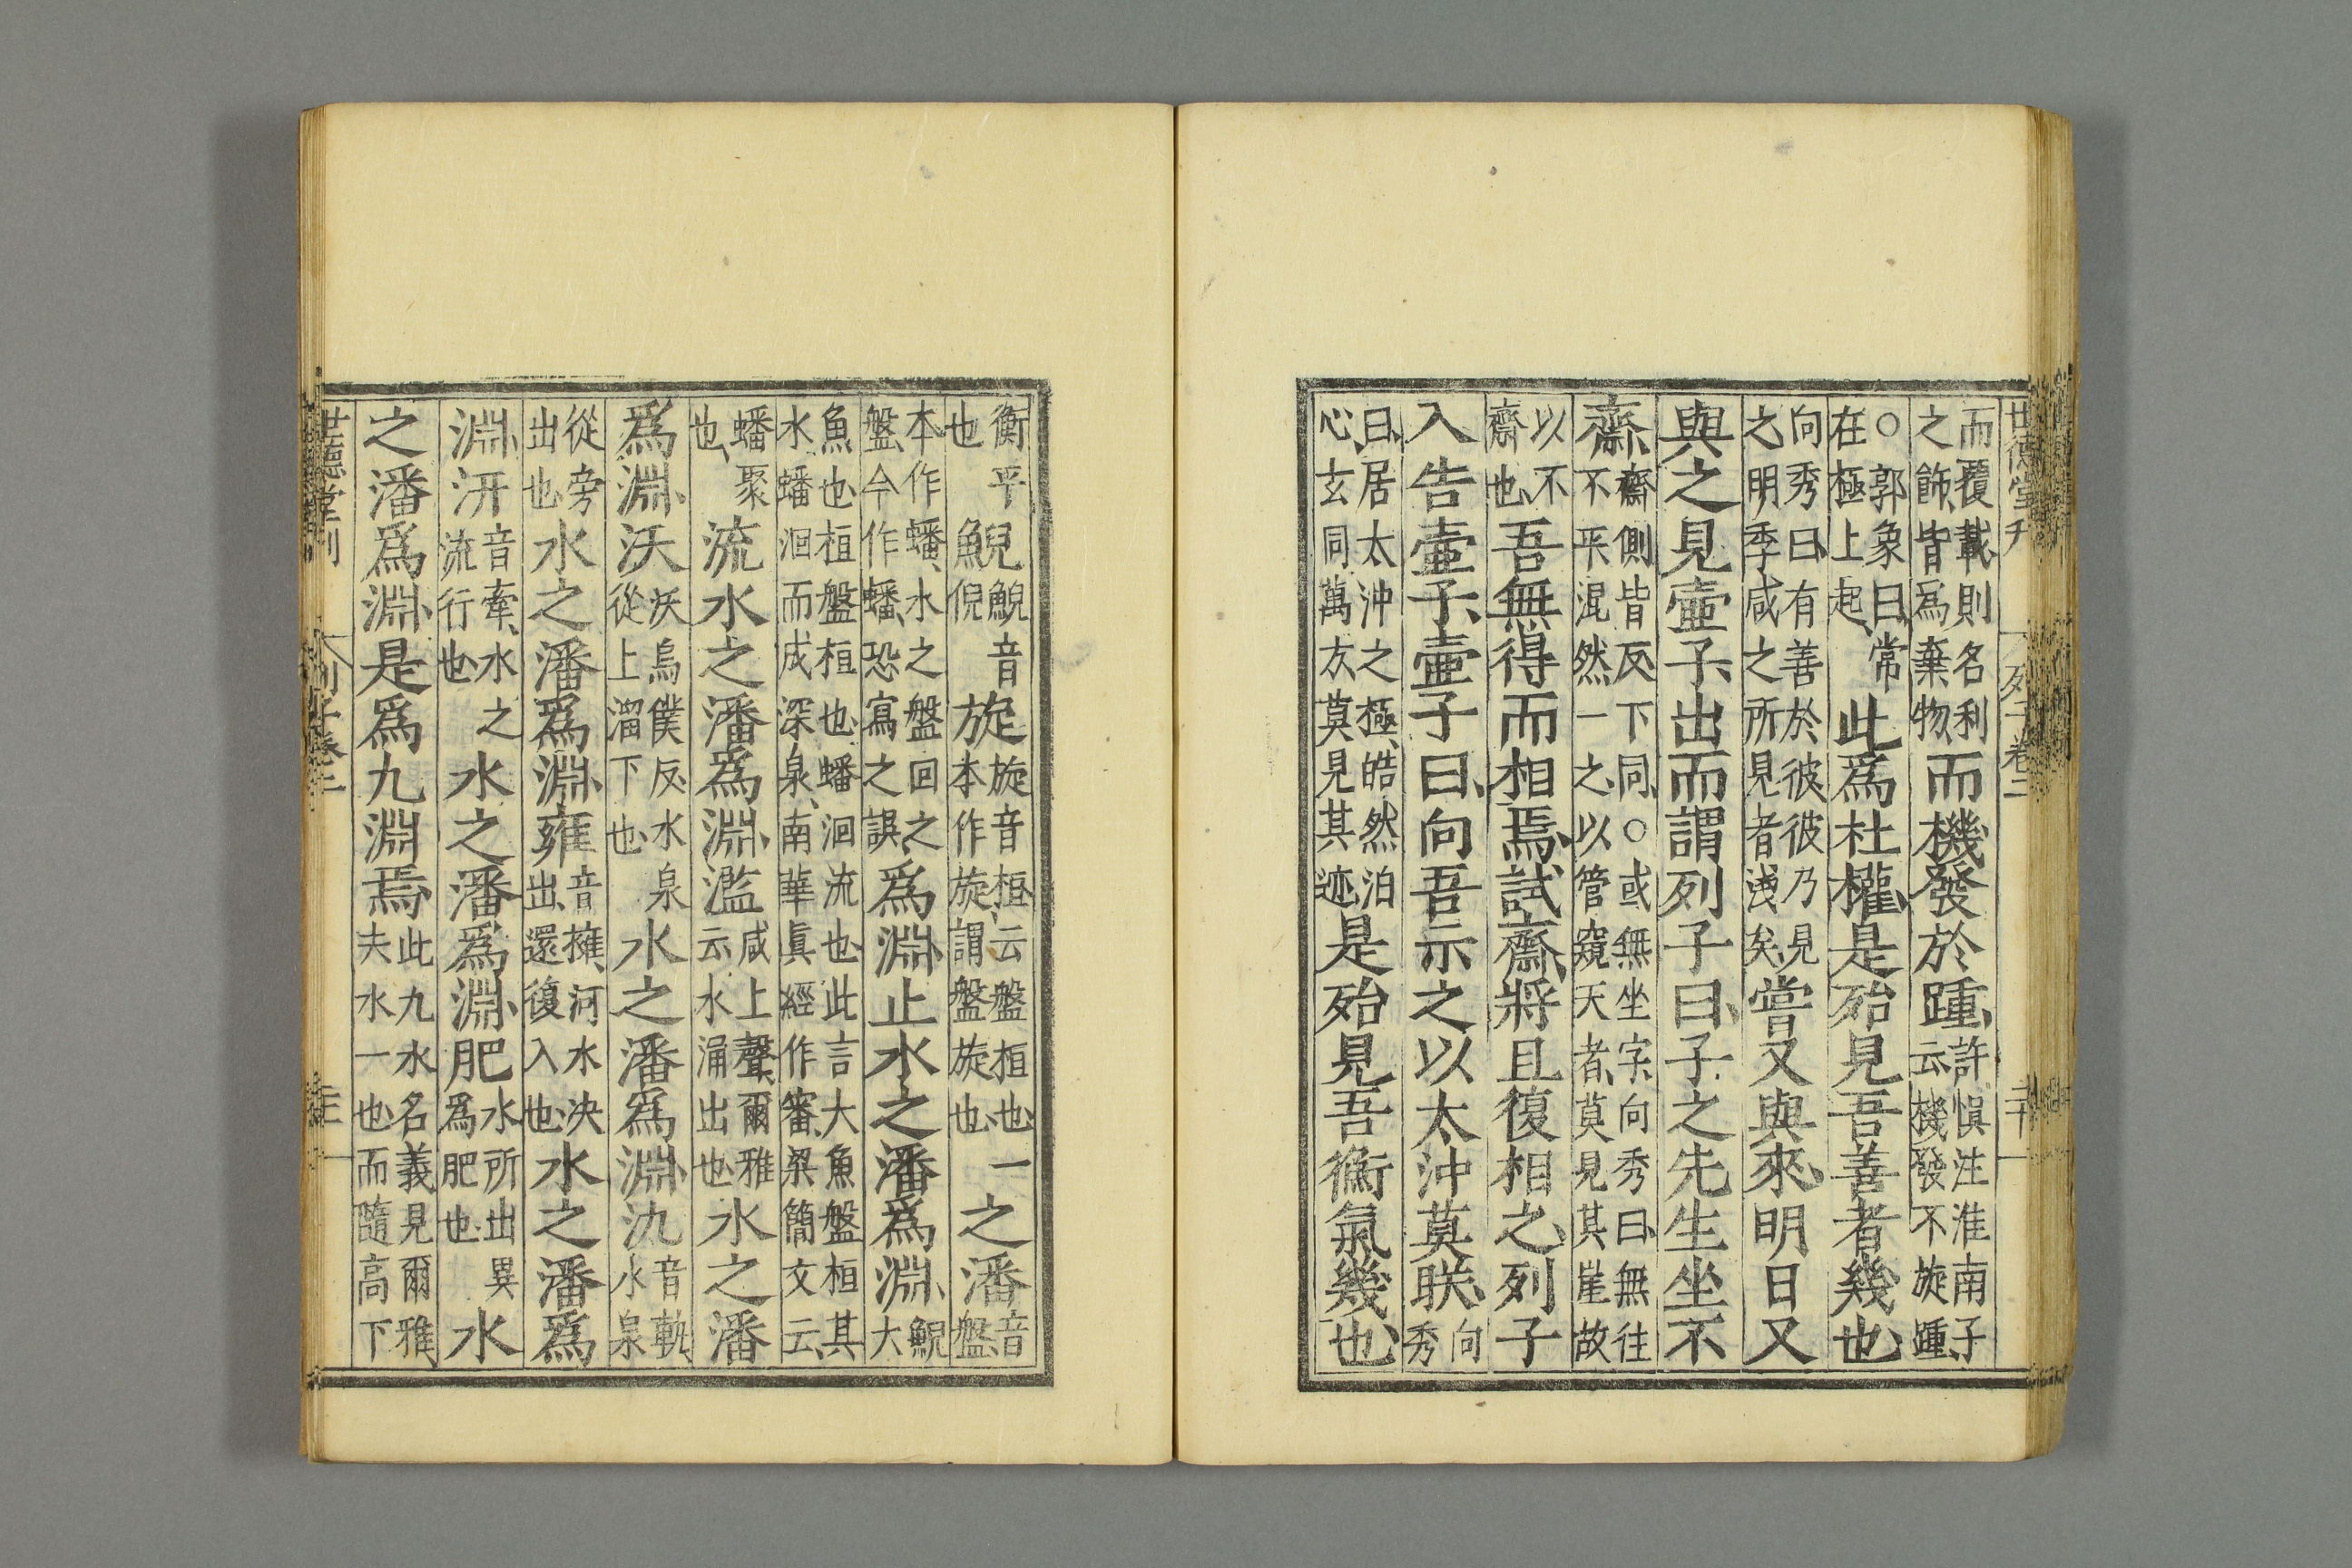 世德堂刋　列子卷二　二十一
而覆載則名利之飾皆爲棄物而機發於踵許愼注淮南子云機發不旋踵
○郭象曰常在極上起此爲杜權是殆見吾善者幾也
向秀曰有善於彼彼乃見之明季咸之所見者淺矣嘗又與來明日又
與之見壺子出而謂列子曰子之先生坐不
齋齋側皆反下同○或無坐字向秀曰無往不平混然一之以管窺天者莫見其崖故
以不齋也吾無得而相焉試齋將且復相之列子
入告壺子壺子曰向吾示之以太沖莫眹向秀
曰居太沖之極皓然泊心玄同萬方莫見其迹是殆見吾衡氣幾也
衡平也鯢鯢音倪旋旋音桓云盤桓也一本作旋謂盤旋也之潘音盤
本作蟠水之盤回之盤今作蟠恐寫之誤爲淵止水之潘爲淵鯢大
魚也桓盤桓也蟠洄流也此言大魚盤桓其水蟠洄而成深泉南華眞經作審梁簡文云
蟠聚也流水之潘爲淵濫咸上聲爾雅云水涌出也水之潘
爲淵沃沃烏僕反水泉從上溜下也水之潘爲淵氿音軌水泉
從旁出也水之潘爲淵雍音擁河水決出還復入也水之潘爲
淵汧音牽水之流行也水之潘爲淵肥水所出異爲肥也水
之潘爲淵是爲九淵焉此九水名義見爾雅夫水一也而隨高下
世德堂刊　列子卷二